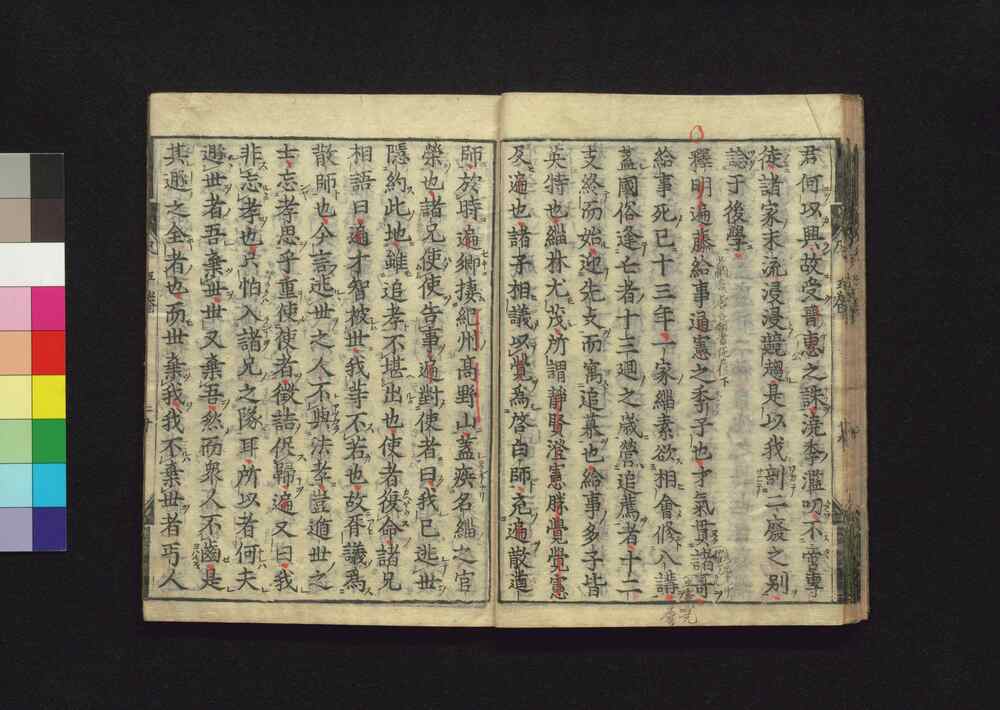 君何以興故受晋惠之誅澆季濫叨不啻專
徒諸家末流浸浸競趨是以我剖二廢之別
諗于後學
釋明遍藤給事通憲之季子也才氣貫諸哥
給事死已十三年一家緇素欲相會修八講
蓋國俗逢亡者十三廻之歳營追薦者十二
支終而始迎先支而寓追慕也給事多子皆
英特也緇林尤茂所謂靜賢澄憲勝覺覺憲
及遍也諸子相議以覺爲啓白師充遍散莚
師於時遍卿捿紀州高野山蓋疾名緇之官
榮也諸兄使使告事遍對使者曰我已逃世
隱約此地雖追孝不堪出也使者復命諸兄
相語曰遍才智被世我等不若也故胥議爲
散師也今言逃世之人不與法孝豈遁世之
士忘孝思乎重使使者徵詰促歸遍又曰我
非忘孝也只怕入諸兄之隊耳所以者何夫
遯世者吾棄世世又棄吾然而衆人不齒是
其遯之全者也而世棄我我不棄世者丐人